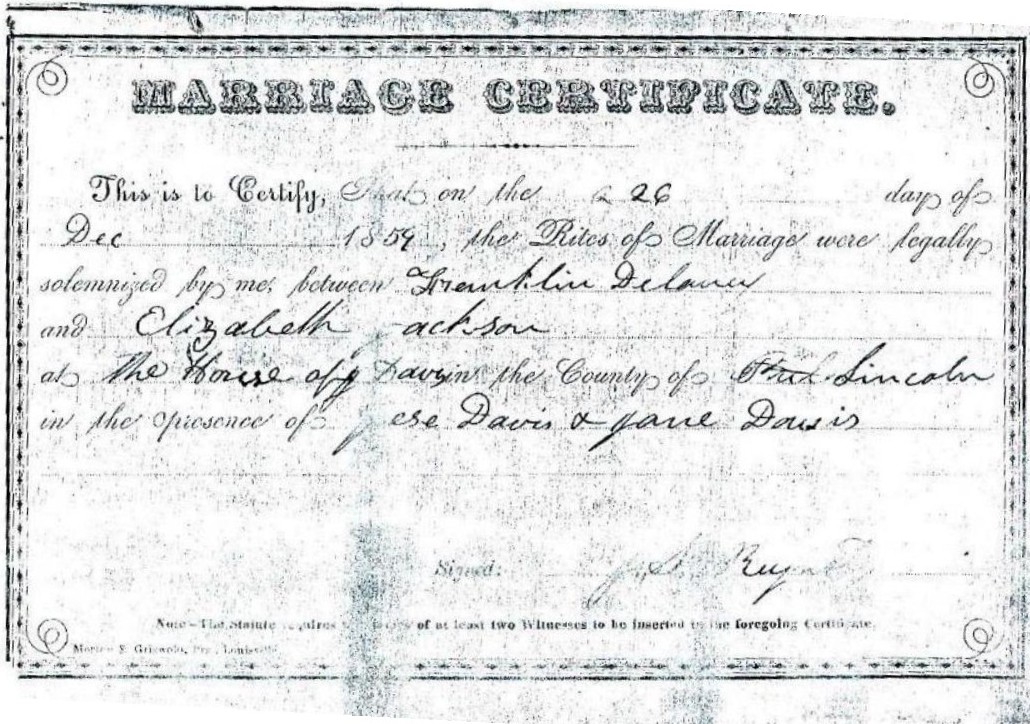 MARRIAGE CERTIFICATE.
This is to Certify, That on the 26 day of
Dec 1859, the Rites of Marriage were legally
solemnized by me, between Franklin
and Elizabeth Jackson
at The House of J Davis in the County of Lincoln
in the presence of Jese Davis & Jane Davis
Signed: J. S.
Note—The Statute requires of at least two Witnesses to be inserted in the foregoing Certificate.
Morton & Griswold, Pr., Louisville